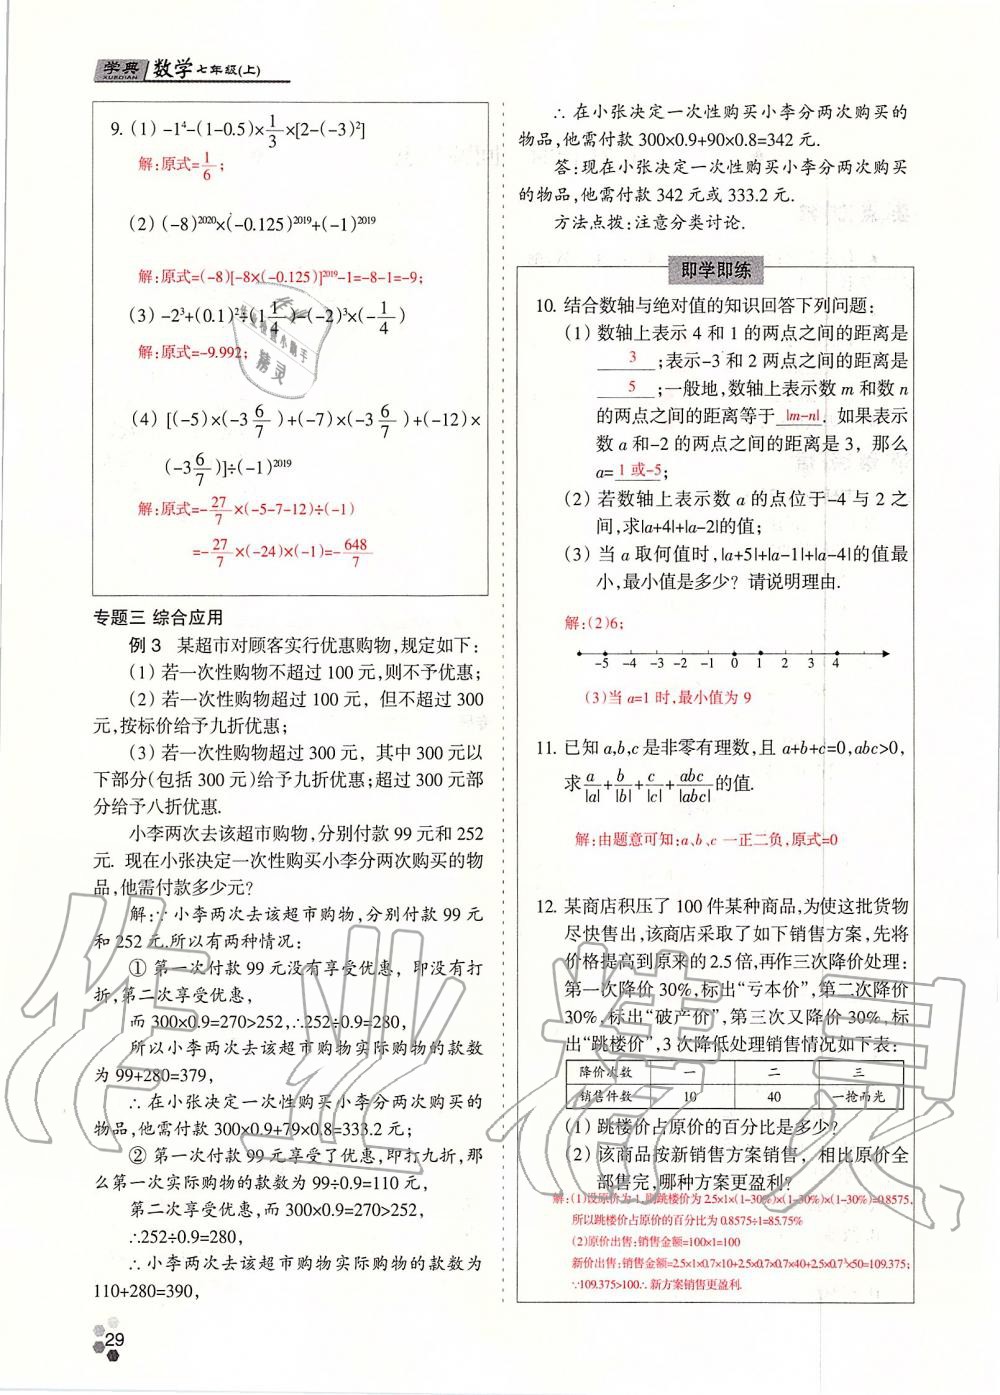 学典 数学 七年级(上)
XUEDIAN
9. (1) -1⁴-(1-0.5)×1/3×[2-(-3)²]
解:原式=1/6;
(2) (-8)²⁰²⁰×(-0.125)²⁰¹⁹+(-1)²⁰¹⁹
解:原式=(-8)[-8×(-0.125)]²⁰¹⁹-1=-8-1=-9;
(3) -2³+(0.1)²÷(1 1/4)-(-2)³×(-1/4)
解:原式=-9.992;
(4) [(-5)×(-3 6/7)+(-7)×(-3 6/7)+(-12)×
(-3 6/7)]÷(-1)²⁰¹⁹
解:原式=-27/7×(-5-7-12)÷(-1)
=-27/7×(-24)×(-1)=-648/7
专题三 综合应用
例 3 某超市对顾客实行优惠购物,规定如下:
(1) 若一次性购物不超过 100 元,则不予优惠;
(2) 若一次性购物超过 100 元, 但不超过 300
元,按标价给予九折优惠;
(3) 若一次性购物超过 300 元, 其中 300 元以
下部分(包括 300 元)给予九折优惠;超过 300 元部
分给予八折优惠.
小李两次去该超市购物,分别付款 99 元和 252
元. 现在小张决定一次性购买小李分两次购买的物
品,他需付款多少元?
解:∵小李两次去该超市购物,分别付款 99 元
和 252 元.所以有两种情况:
① 第一次付款 99 元没有享受优惠, 即没有打
折,第二次享受优惠,
而 300×0.9=270>252,∴252÷0.9=280,
所以小李两次去该超市购物实际购物的款数
为 99+280=379,
∴ 在小张决定一次性购买小李分两次购买的
物品,他需付款 300×0.9+79×0.8=333.2 元;
② 第一次付款 99 元享受了优惠,即打九折,那
么第一次实际购物的款数为 99÷0.9=110 元,
第二次享受优惠,而 300×0.9=270>252,
∴252÷0.9=280,
∴ 小李两次去该超市购物实际购物的款数为
110+280=390,
29
∴ 在小张决定一次性购买小李分两次购买的
物品,他需付款 300×0.9+90×0.8=342 元.
答:现在小张决定一次性购买小李分两次购买
的物品,他需付款 342 元或 333.2 元.
方法点拨:注意分类讨论.
即学即练
10. 结合数轴与绝对值的知识回答下列问题:
(1) 数轴上表示 4 和 1 的两点之间的距离是
3;表示-3 和 2 两点之间的距离是
5;一般地,数轴上表示数 m 和数 n
的两点之间的距离等于 |m-n|. 如果表示
数 a 和-2 的两点之间的距离是 3, 那么
a=1 或-5;
(2) 若数轴上表示数 a 的点位于-4 与 2 之
间,求|a+4|+|a-2|的值;
(3) 当 a 取何值时,|a+5|+|a-1|+|a-4|的值最
小,最小值是多少? 请说明理由.
解:(2)6;
-5 -4 -3 -2 -1 0 1 2 3 4
(3)当 a=1 时,最小值为 9
11. 已知 a,b,c 是非零有理数,且 a+b+c=0,abc>0,
求a/|a|+b/|b|+c/|c|+abc/|abc|的值.
解:由题意可知:a、b、c 一正二负,原式=0
12. 某商店积压了 100 件某种商品,为使这批货物
尽快售出,该商店采取了如下销售方案,先将
价格提高到原来的 2.5 倍,再作三次降价处理:
第一次降价 30%,标出“亏本价”,第二次降价
30%,标出“破产价”,第三次又降价 30%,标
出“跳楼价”,3 次降低处理销售情况如下表:
降价次数 一 二 三
销售件数 10 40 一抢而光
(1) 跳楼价占原价的百分比是多少?
(2) 该商品按新销售方案销售, 相比原价全
部售完,哪种方案更盈利?
解:(1)设原价为 1,则跳楼价为 2.5×1×(1-30%)×(1-30%)×(1-30%)=0.8575,
所以跳楼价占原价的百分比为 0.8575÷1=85.75%
(2)原价出售:销售金额=100×1=100
新价出售:销售金额=2.5×1×0.7×10+2.5×0.7×0.7×40+2.5×0.7³×50=109.375;
∵109.375>100∴新方案销售更盈利.
作业精灵